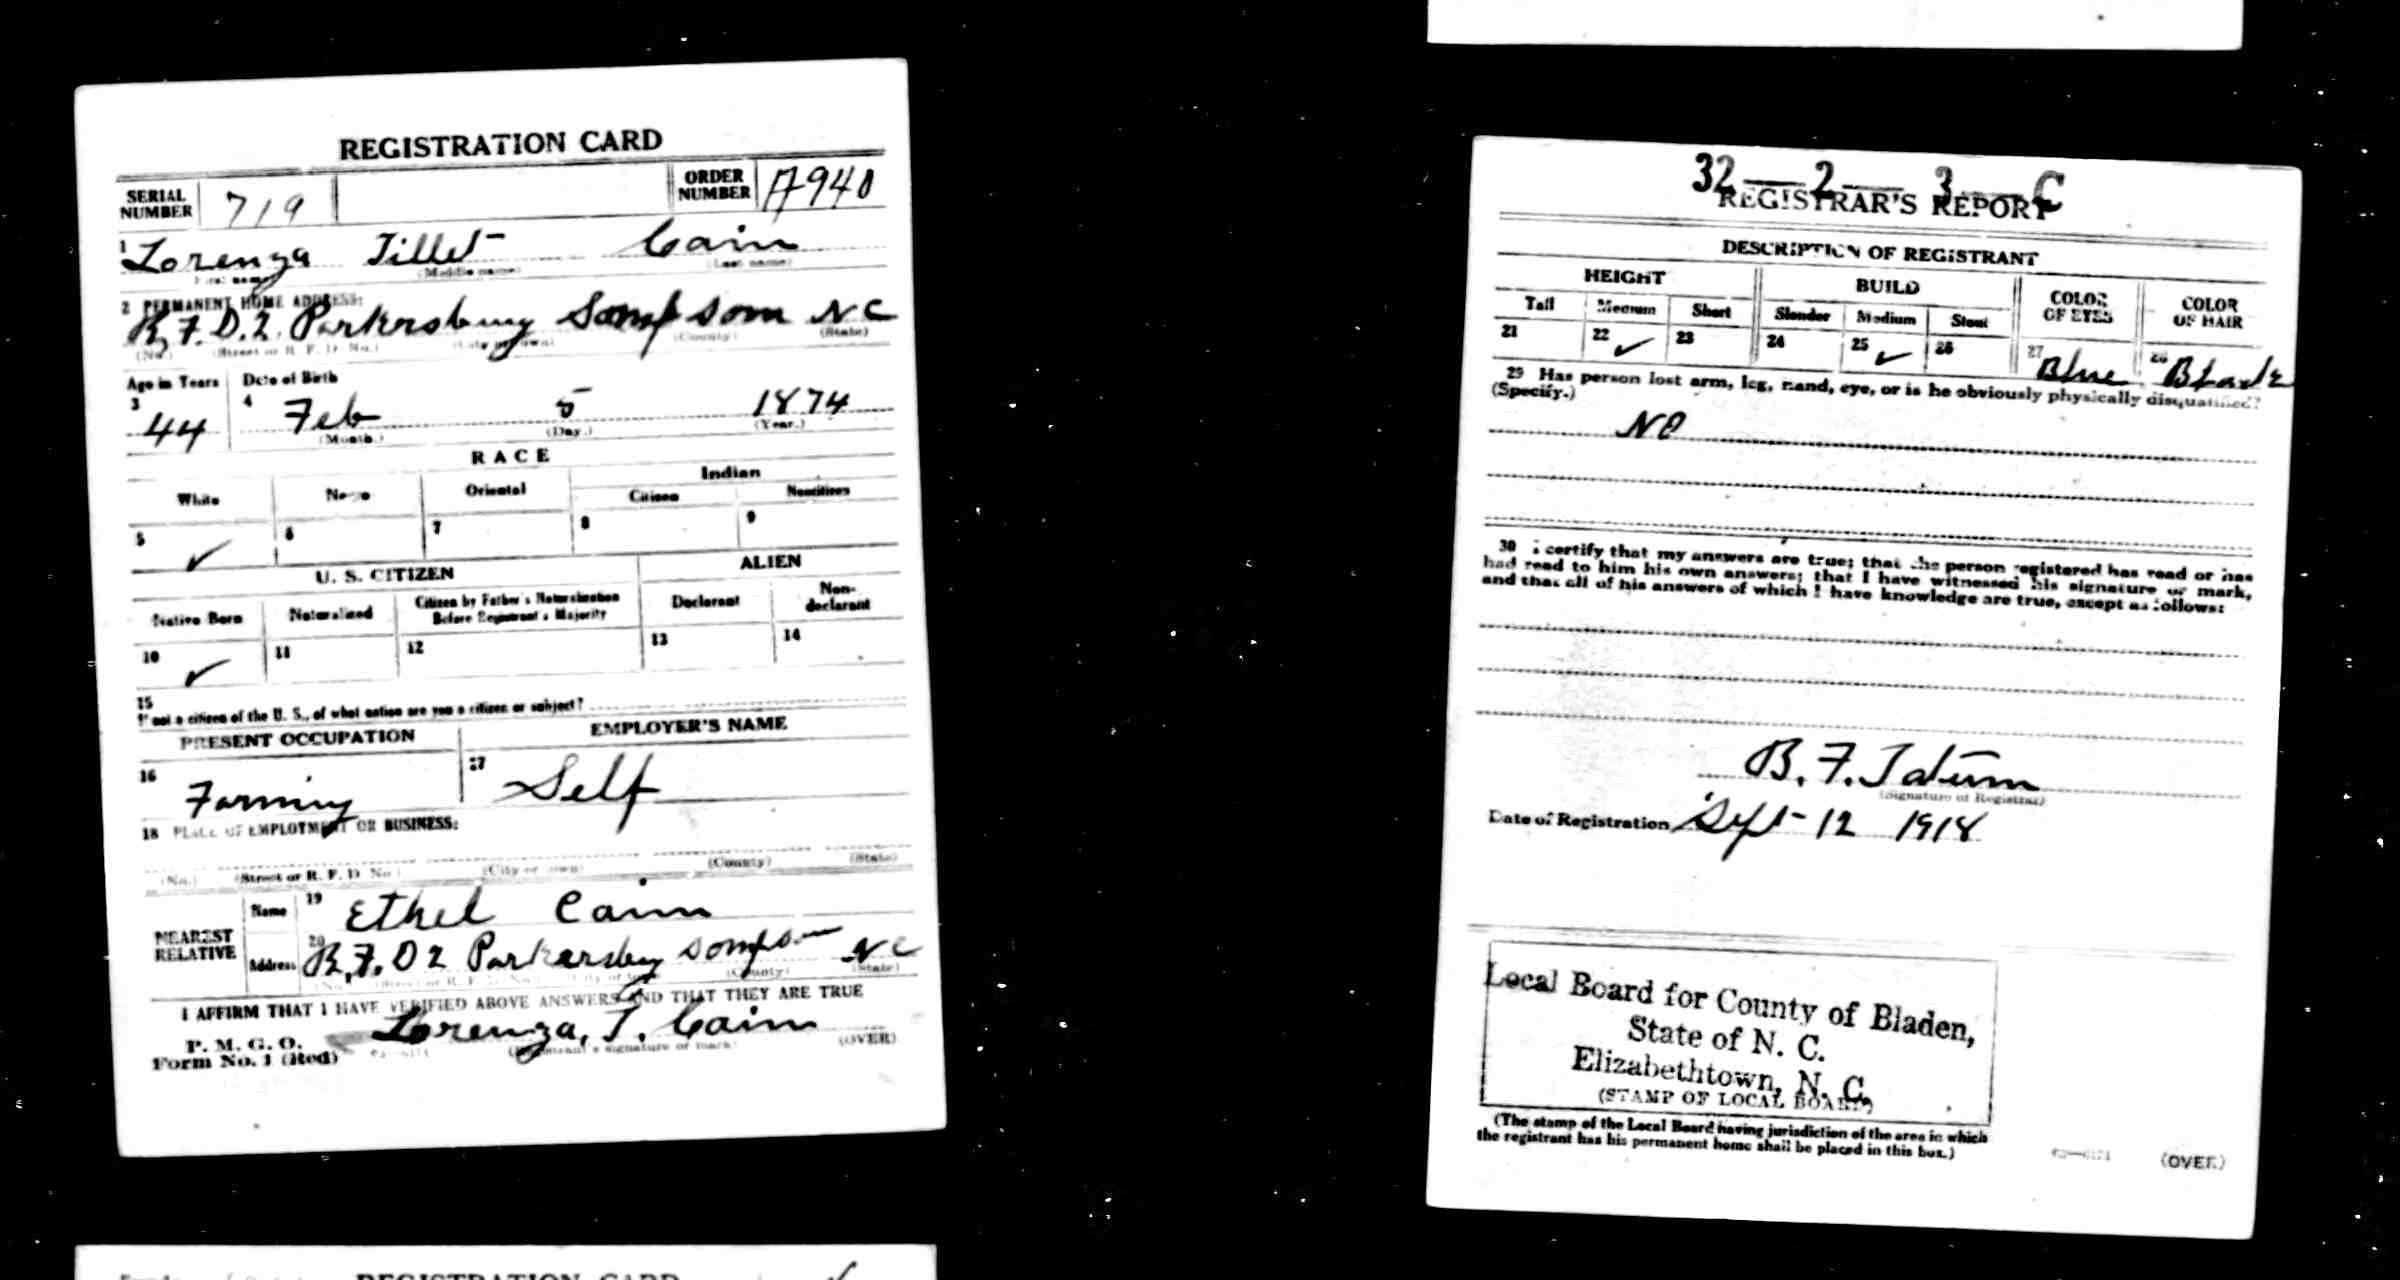 REGISTRATION CARD
SERIAL NUMBER 719 ORDER NUMBER A940
1 Lorenza Tillet Cain
(First name) (Middle name) (Last name)
2 PERMANENT HOME ADDRESS:
R.F.D.2. Parkersburg Sampsom NC
(No.) (Street or R. F. D. No.) (City or town) (County) (State)
Age in Years Date of Birth
3 44 4 Feb 5 1874
(Month.) (Day.) (Year.)
RACE
White Negro Oriental Indian
Citizen Noncitizen
5 ✓ 6 7 8 9
U. S. CITIZEN ALIEN
Native Born Naturalized Citizen by Father's Naturalization Before Registrant's Majority Declarant Non-declarant
10 ✓ 11 12 13 14
15
If not a citizen of the U. S., of what nation are you a citizen or subject?
PRESENT OCCUPATION EMPLOYER'S NAME
16 Farming 17 Self
18 PLACE OF EMPLOYMENT OR BUSINESS:
(No.) (Street or R. F. D. No.) (City or town) (County) (State)
NEAREST RELATIVE Name 19 Ethel Cain
Address 20 R.F.D 2 Parkersburg Sampson NC
(No.) (Street or R. F. D. No.) (City or town) (County) (State)
I AFFIRM THAT I HAVE VERIFIED ABOVE ANSWERS AND THAT THEY ARE TRUE
P. M. G. O.
Form No. 1 (Red) Lorenza, T. Cain
(Registrant's signature or mark) (OVER)
REGISTRATION CARD
32—2—3—C
REGISTRAR'S REPORT
DESCRIPTION OF REGISTRANT
HEIGHT BUILD COLOR OF EYES COLOR OF HAIR
Tall Medium Short Slender Medium Stout
21 22 ✓ 23 24 25 ✓ 26 27 Blue 28 Black
29 Has person lost arm, leg, hand, eye, or is he obviously physically disqualified?
(Specify.)
No
30 I certify that my answers are true; that the person registered has read or has
had read to him his own answers; that I have witnessed his signature or mark,
and that all of his answers of which I have knowledge are true, except as follows:
B. F. Tatum
(Signature of Registrar)
Date of Registration Sept-12 1918
Local Board for County of Bladen,
State of N. C.
Elizabethtown, N. C.
(STAMP OF LOCAL BOARD)
(The stamp of the Local Board having jurisdiction of the area in which
the registrant has his permanent home shall be placed in this box.)
(OVER)